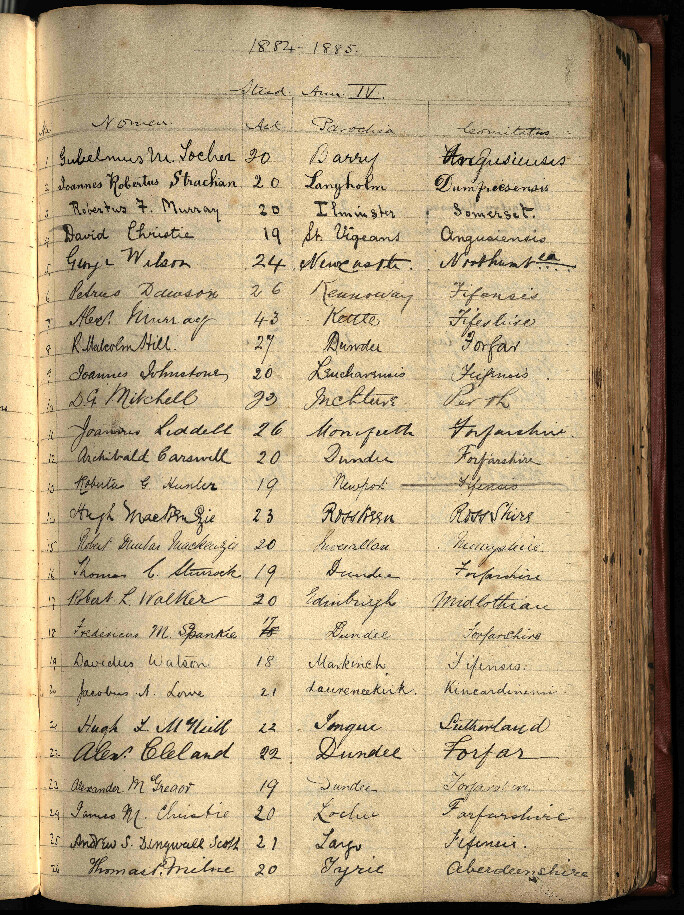 1884-1885.
Stud. Ann IV.
No. Nomen. Aet. Parochia Comitatus
1 Gulielmus M. Locher 20 Barry Angusiensis
2 Joannes Robertus Strachan 20 Langholm Dumfreesensis
3 Robertus F. Murray 20 Ilminster Somerset.
4 David Christie 19 St. Vigeans Angusiensis
5 George Wilson 24 Newcastle.
6 Petrus Dawson 26 Kennoway Fifensis
7 Alexr. Murray 43 Kettle Fifeshire
8 R. Malcolm Hill. 27 Dundee Forfar
9 Joannes Johnstone 20 Leucharensis Fifensis.
10 D. G. Mitchell 23 Inchture Perth
11 Joannes Liddell 26 Monifieth Forfarshire.
12 Archibald Carswell 20 Dundee Forfarshire
13 Robertus G. Hunter 19 Newport Fifensis
14 Hugh MacKenzie 23 Rosskeen RossShire
15 Robert Dunbar Mackenzie 20 Inverallan Morayshire
16 Thomas C. Sturrock 19 Dundee Forfarshire
17 Robert L Walker 20 Edinburgh Midlothian
18 Fredericus M. Spankie Dundee Forfarshire
19 Davidus Watson 18 Markinch Fifensis.
20 Jacobus A. Lowe 21 Laurencekirk. Kincardinensi.
21 Hugh F McNeill 22 Tongue Sutherland
22 Alexr. Cleland 22 Dundee Forfar
23 Alexander McGregor 19 Dundee Forfarshire
24 James M. Christie 20 Lochee Forfarshire
25 Andrew S. Dingwall Scott 21 Largo Fifensis.
26 Thomas P. Milne 20 Tyrie Aberdeenshire